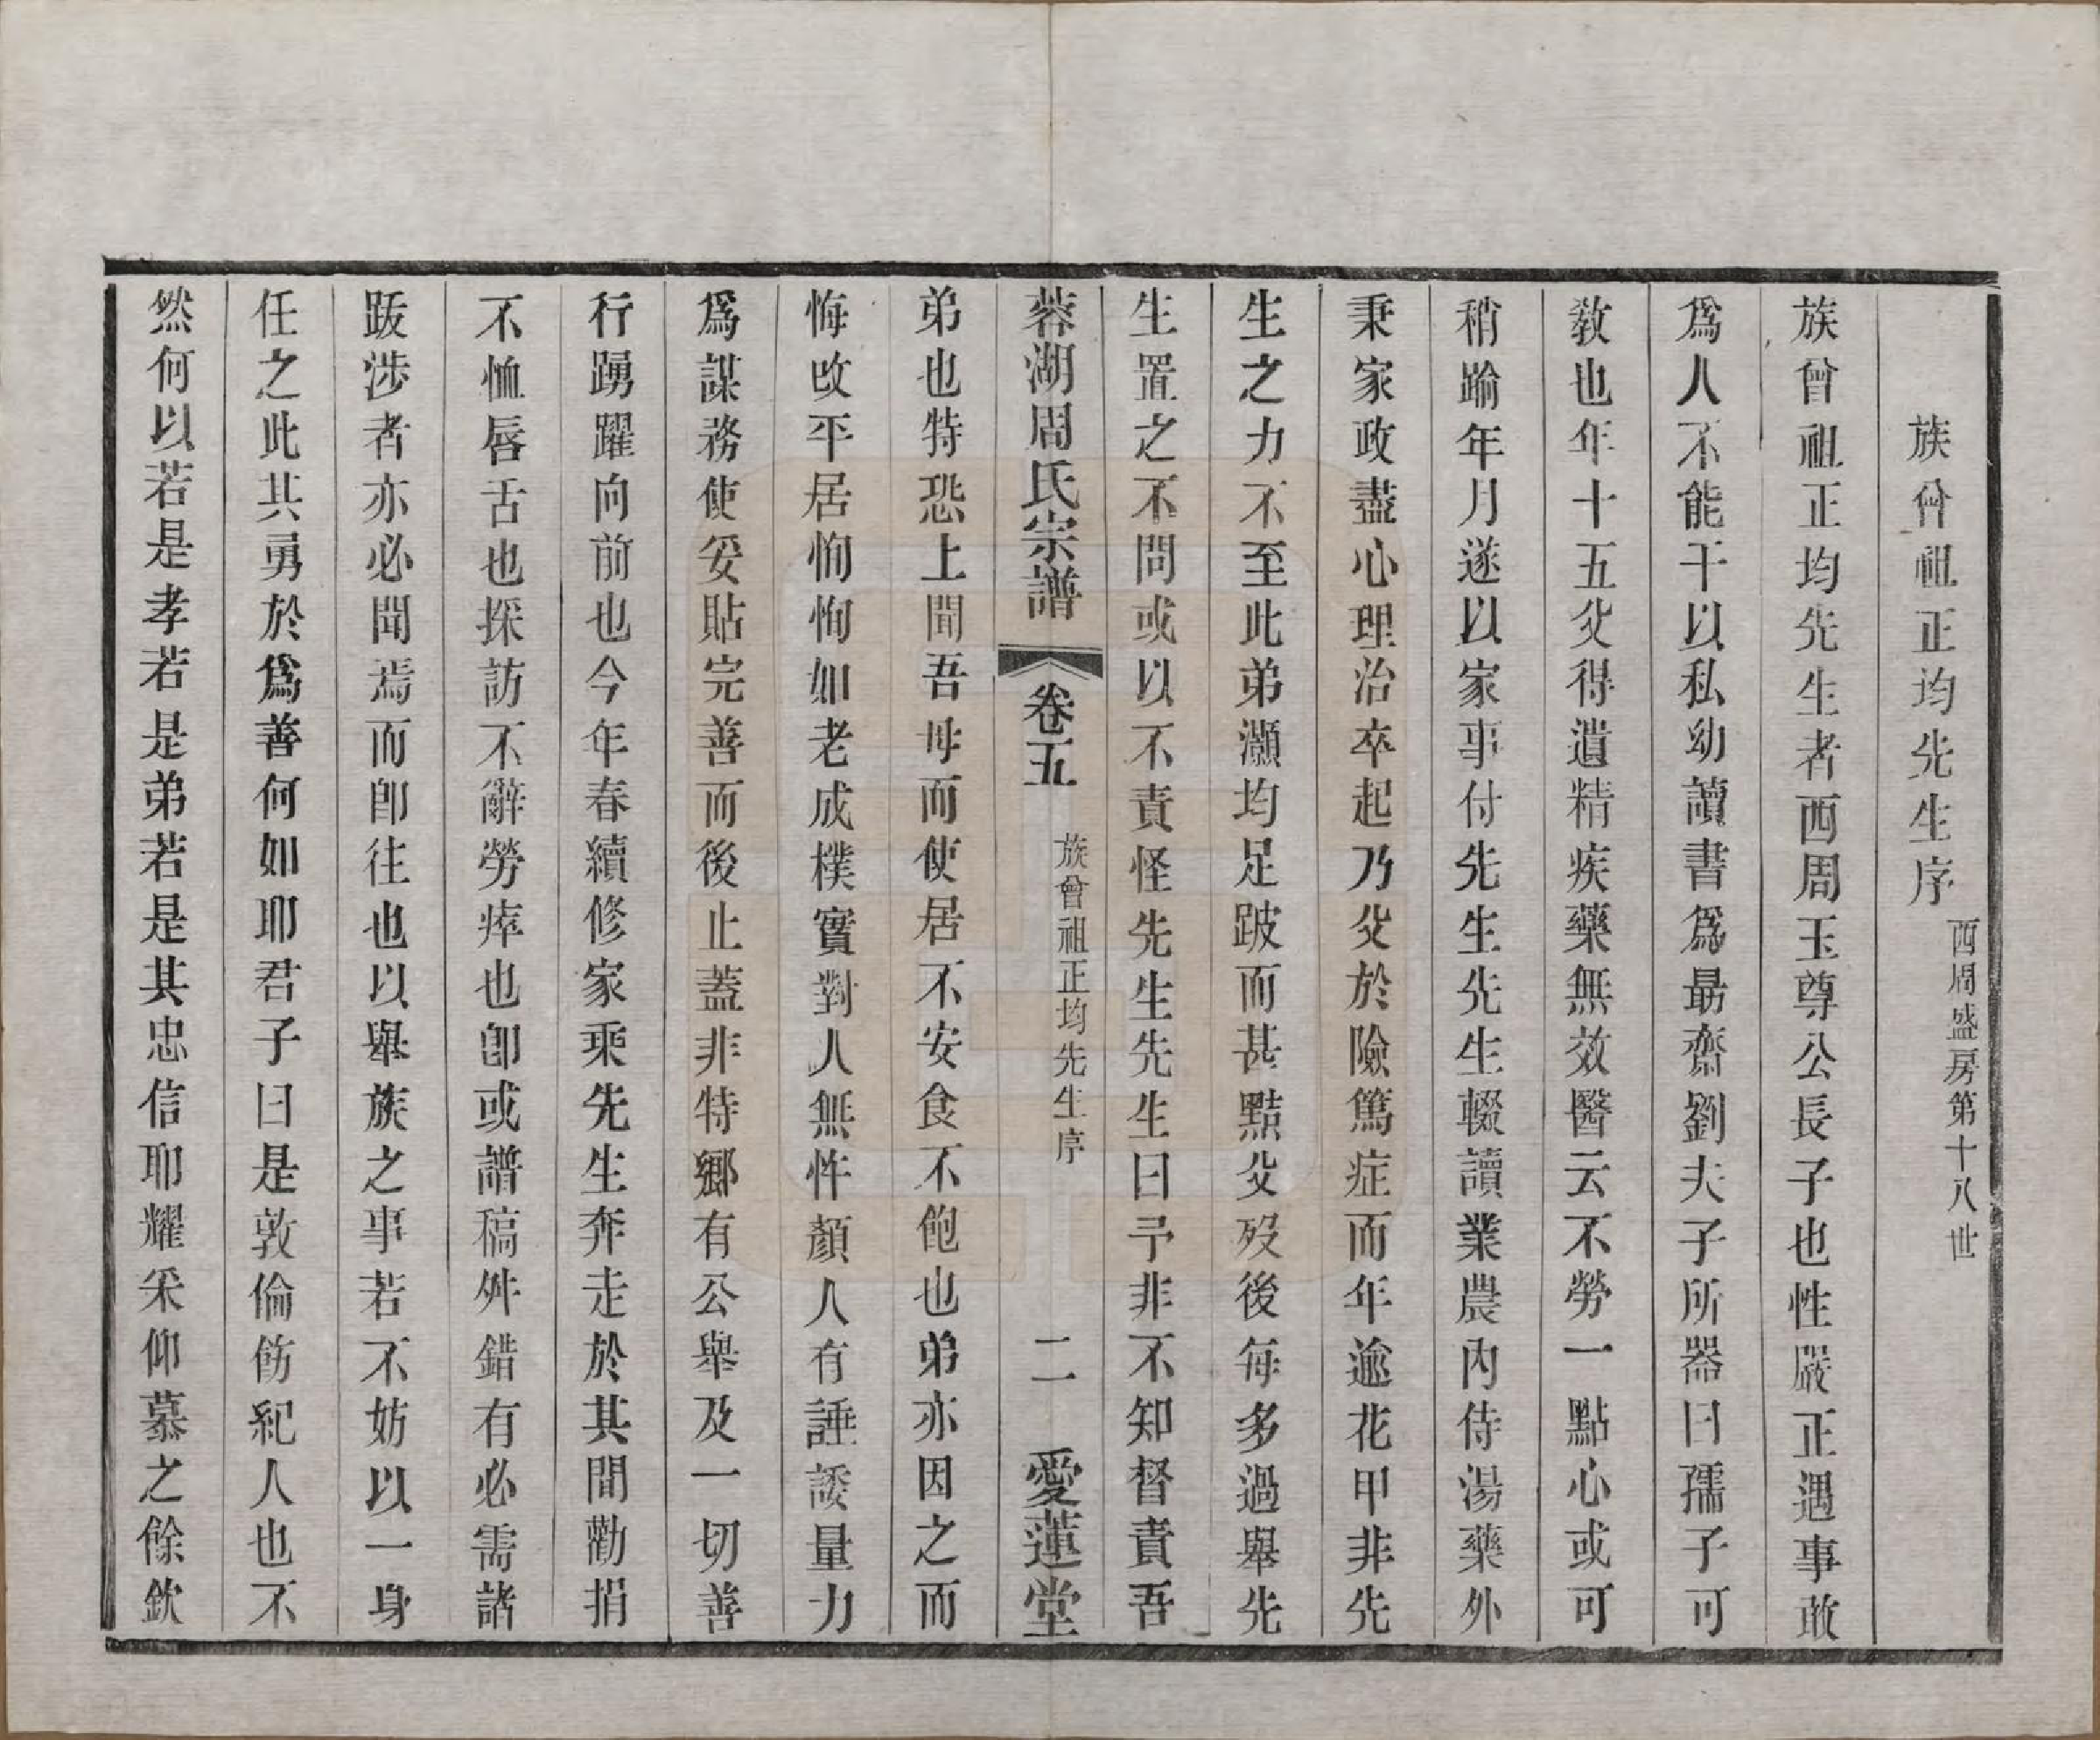 族曾祖正均先生序 西周盛房第十八世
族曾祖正均先生者西周玉尊公長子也性嚴正遇事敢
爲人不能干以私幼讀書爲最齋劉夫子所器曰孺子可
敎也年十五父得遺精疾藥無效醫云不勞一點心或可
稍踰年月遂以家事付先生先生輟讀業農內侍湯藥外
秉家政盡心理治卒起乃父於險篤症而年逾花甲非先
生之力不至此弟灝均足跛而甚黠父歿後每多過舉先
生置之不問或以不責怪先生先生曰予非不知督責吾
蓉湖周氏宗譜 卷五 族曾祖正均先生序 二 愛蓮堂
弟也特恐上聞吾母而使居不安食不飽也弟亦因之而
悔改平居恂恂如老成樸實對人無忤顏人有諈諉量力
爲謀務使妥貼完善而後止蓋非特鄉有公舉及一切善
行踴躍向前也今年春續修家乘先生奔走於其間勸捐
不恤唇舌也探訪不辭勞瘁也卽或譜稿舛錯有必需諸
跋涉者亦必聞焉而卽往也以舉族之事若不妨以一身
任之此其勇於爲善何如耶君子曰是敦倫飭紀人也不
然何以若是孝若是弟若是其忠信耶耀采仰慕之餘欽